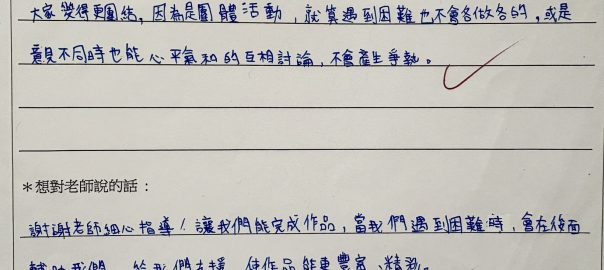 大家變得更團結，因為是團體活動，就算遇到困難也不會各做各的，或是
意見不同時也能心平氣和的互相討論，不會產生爭執。
＊想對老師說的話：
謝謝老師細心指導！讓我們能完成作品，當我們遇到困難時，會在後面
輔助我們、給我們支援，使作品能更豐富、精彩。